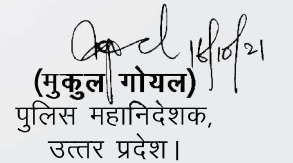 16/10/21
(मुकुल गोयल)
पुलिस महानिदेशक,
उत्तर प्रदेश।